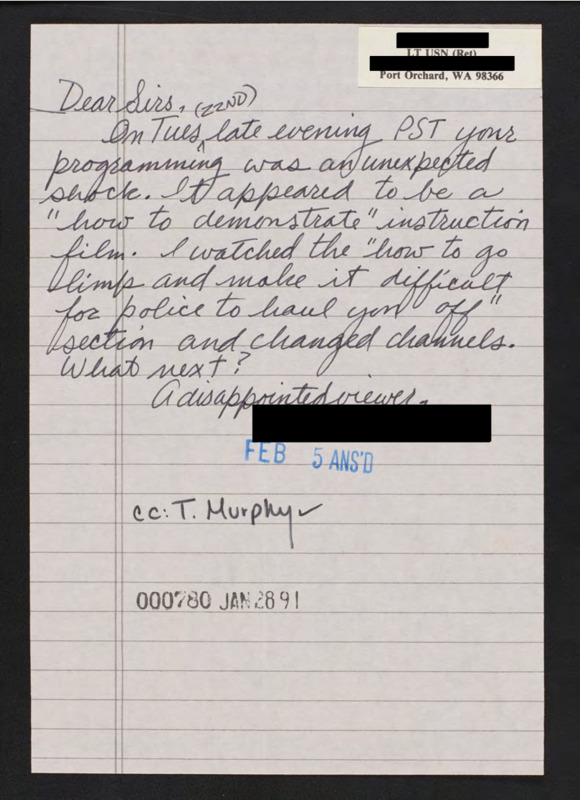 LT USN (Ret)
Port Orchard, WA 98366
Dear Sirs, (22ND)
On Tues ^ late evening PST your
programming was an unexpected
shock. It appeared to be a
"how to demonstrate" instruction
film. I watched the "how to go
limp and make it difficult
for police to haul you off"
section and changed channels.
What next?
A disappointed viewer.
FEB 5 ANS'D
cc: T. Murphy ✓
000780 JAN 28 91